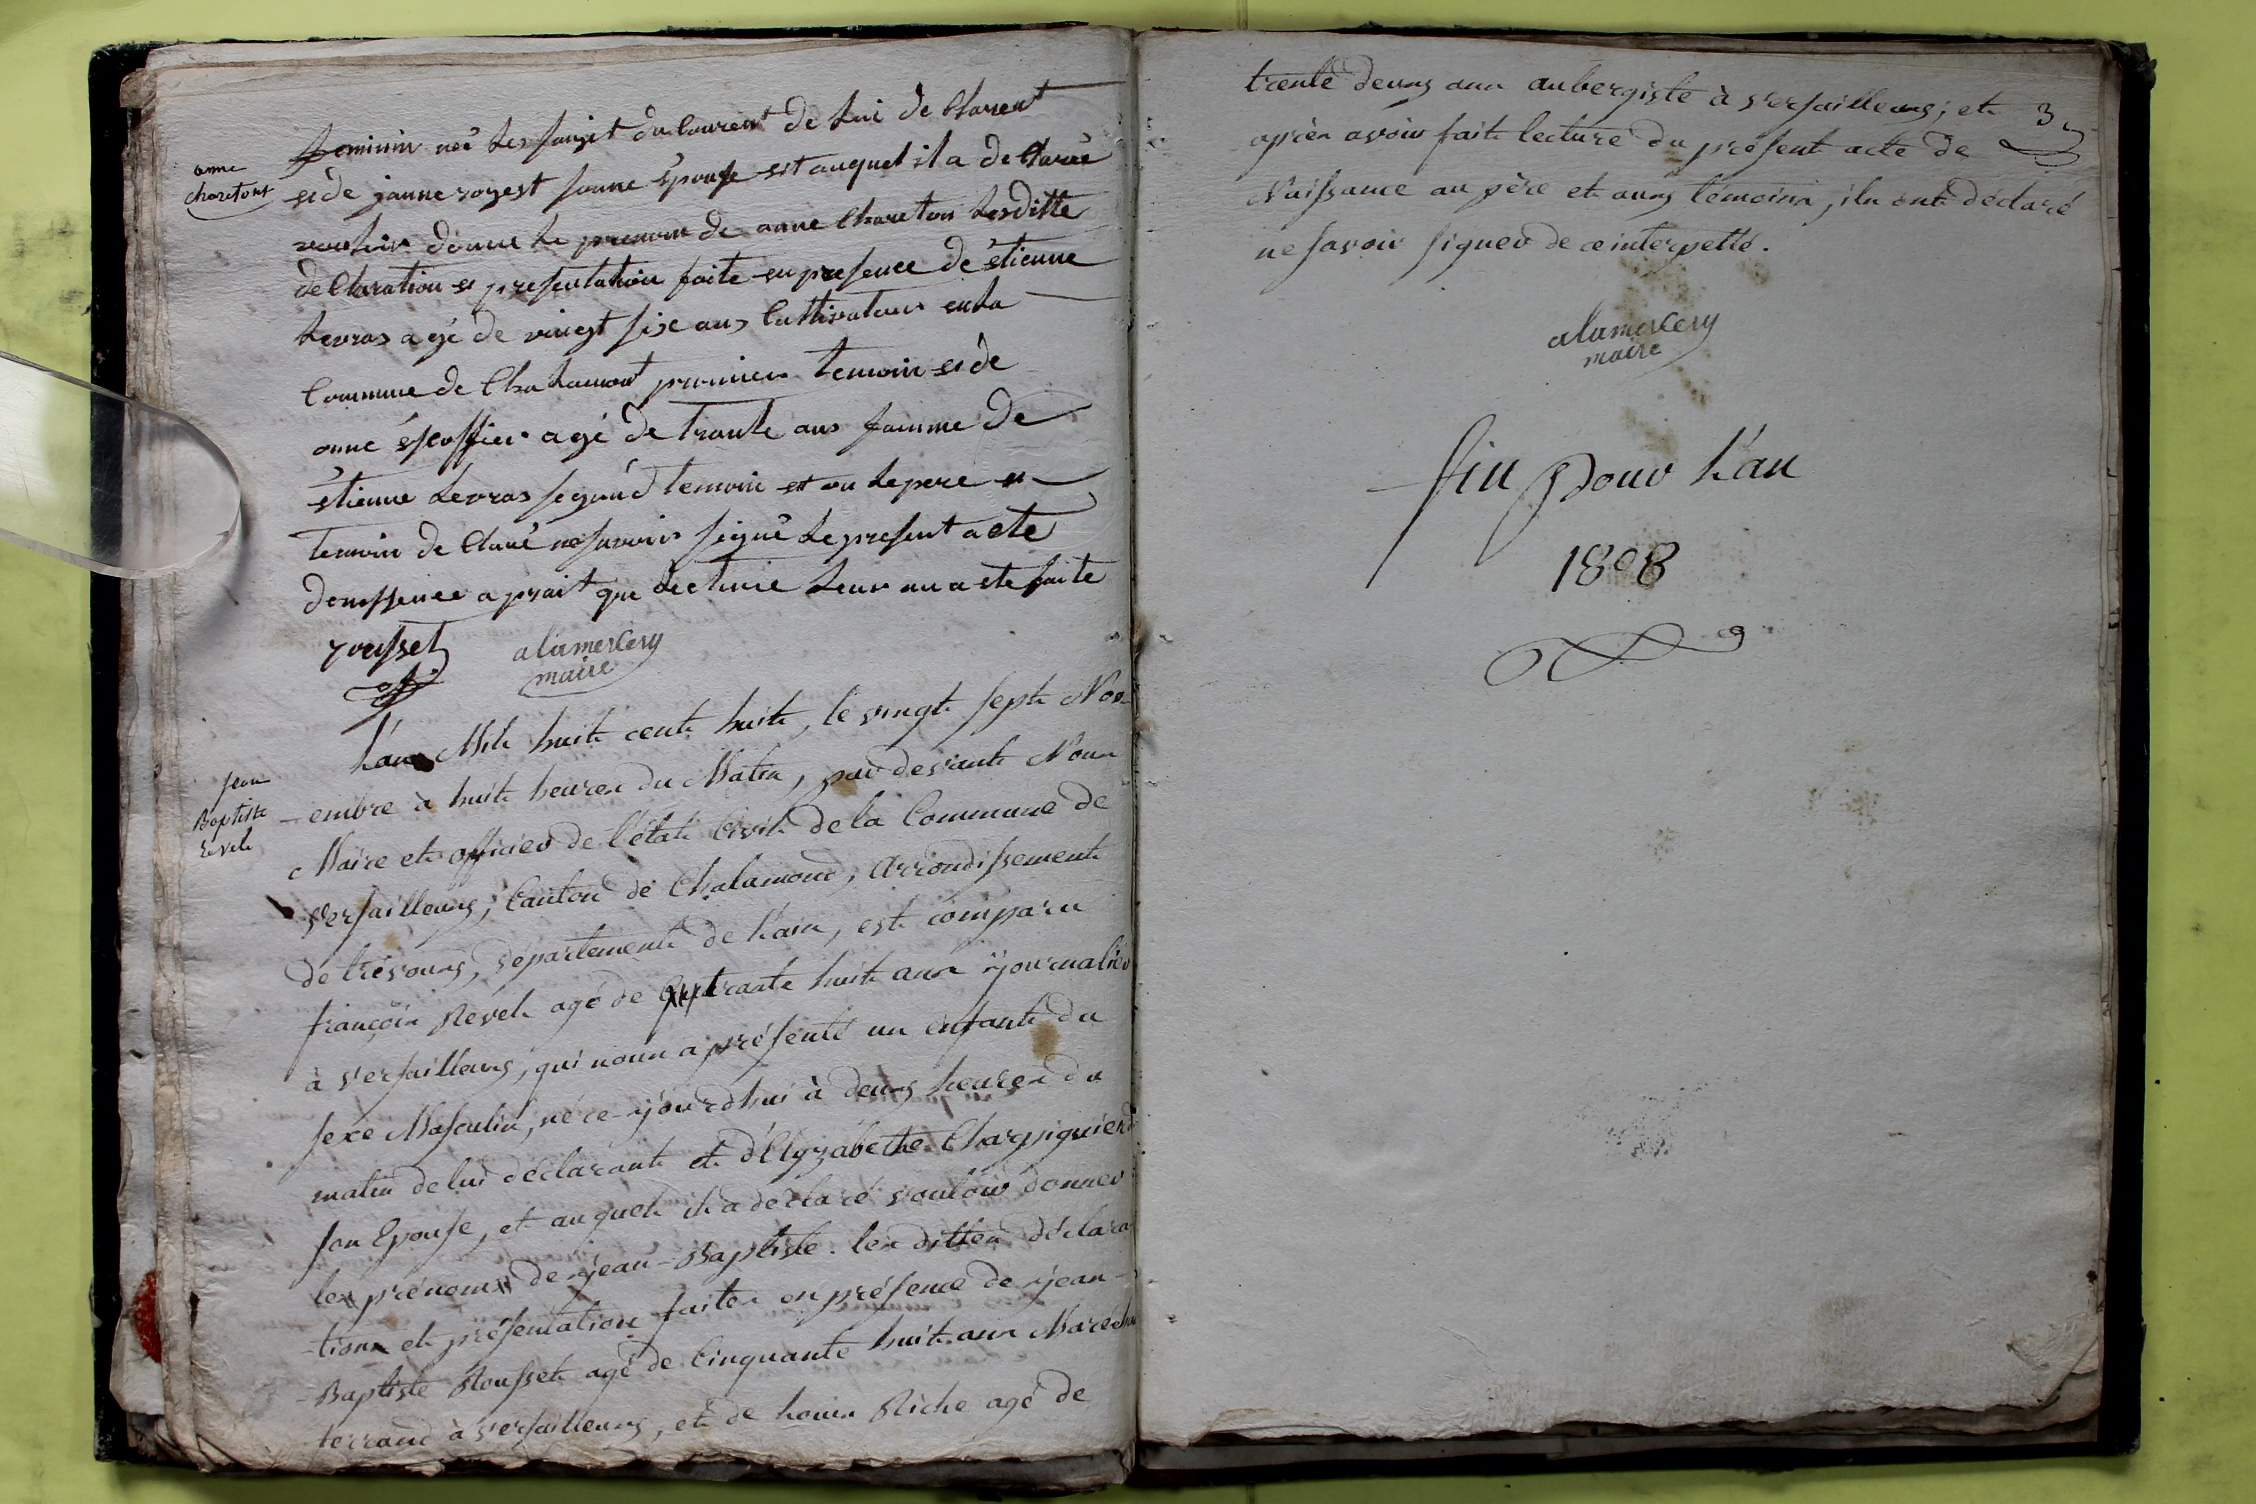 anne
charetont
feminin née les sangit du courent de lui de Clarent
et de janne royest sonne épouse est auquel il a de Claree
vouloir donné le prenom de anne Chareton lesditte
de Claration et presentation faite en presence de étienne
Levras agé de vingt sixe ans Cultivateur en la
Commune de Chalamont premier temoin et de
anne escoffier agé de trante ans famme de
étienne Levras segond temoin et on le pere et
temoin de Claré ne savoir signé le present acte
denessence aprait que lecture leur en a ete faite
rousset alamercery
maire
Jean
Baptiste
Revel
L'an Mil huit cent huit, le vingt sept Nov-
-embre à huit heures du Matin, par devant Nous
Maire et officier de l'état Civil de la Commune de
Versailleux, Canton de Chalamond, Arrondissement
de trévoux, département de L'ain, est comparu
françois Revel agé de quatrante huit ans journalier
à versailleux, qui nous a présenté un enfant du
sexe Masculin, né ce-jourdhui à deux heures du
matin de lui déclarant et d'Elyzabethe Charpiguiend
son Epouse, et auquel il a déclaré vouloir donner
les prénoms de jean-Baptiste. les dittes déclara
-tions et présentation faites en présence de jean-
-Baptiste Rousset agé de Cinquante huit ans Maréchal
-ferrand à versailleux, et de Louis Riche agé de
trente deux ans aubergiste à versailleux; et
après avoir fait lecture du présent acte de
Naissance au père et aux témoins, ils ont déclaré
ne savoir signer de ce interpellé.
3
alamercery
maire
fin pour L'an
1808